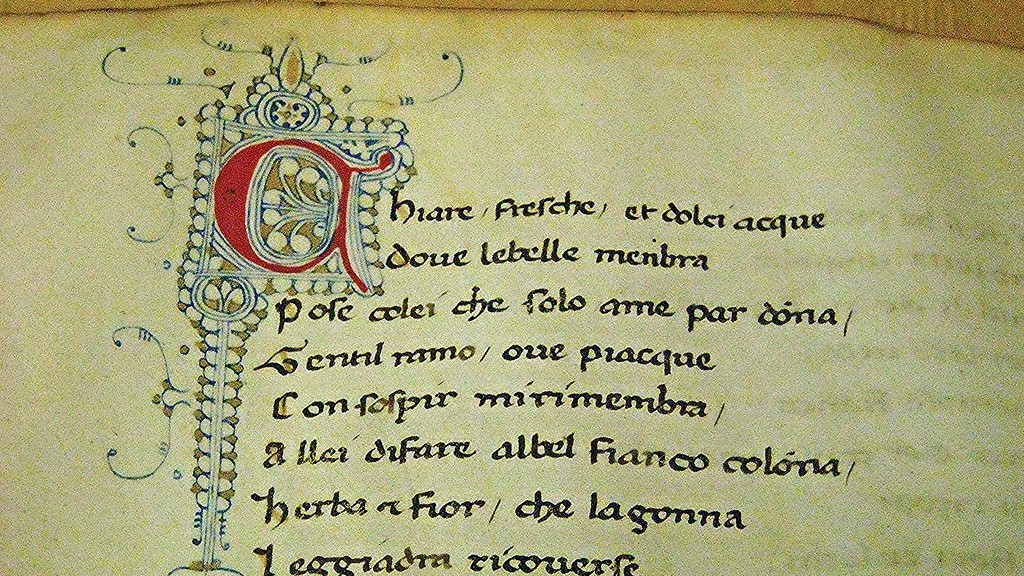 Chiare / fresche / et dolci acque
doue lebelle membra
Pose colei che solo ame par dóna /
Gentil ramo / oue piacque
Con sospir mi rimembra /
A llei difare albel fianco colóna /
Herba & fior / che lagonna
Leggiadra ricouerse